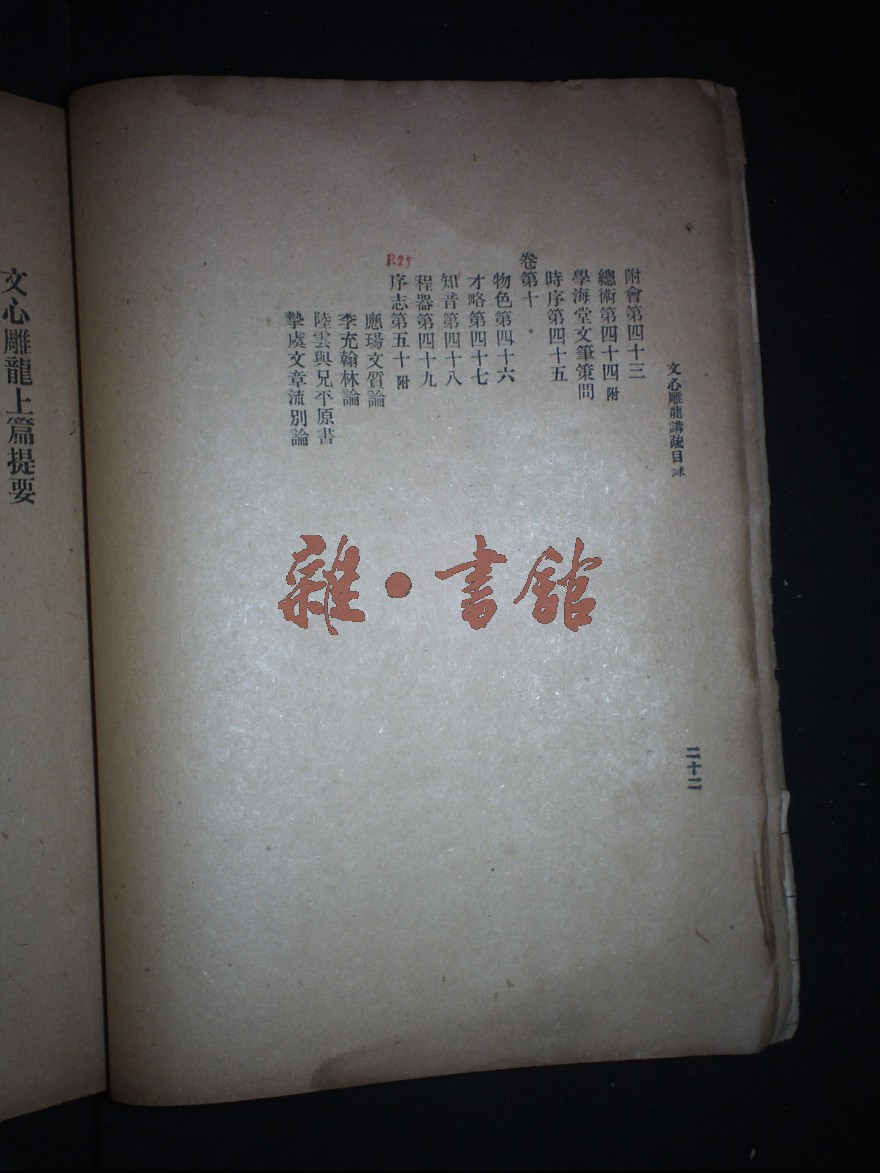 文心雕龍講疏目录
附會第四十三
總術第四十四 附
學海堂文筆策問
時序第四十五
卷第十
物色第四十六
才略第四十七
知音第四十八
程器第四十九
P.25
序志第五十 附
應瑒文質論
李充翰林論
陸雲與兄平原書
摯虞文章流別論
二十二
雜·書館
文心雕龍上篇提要